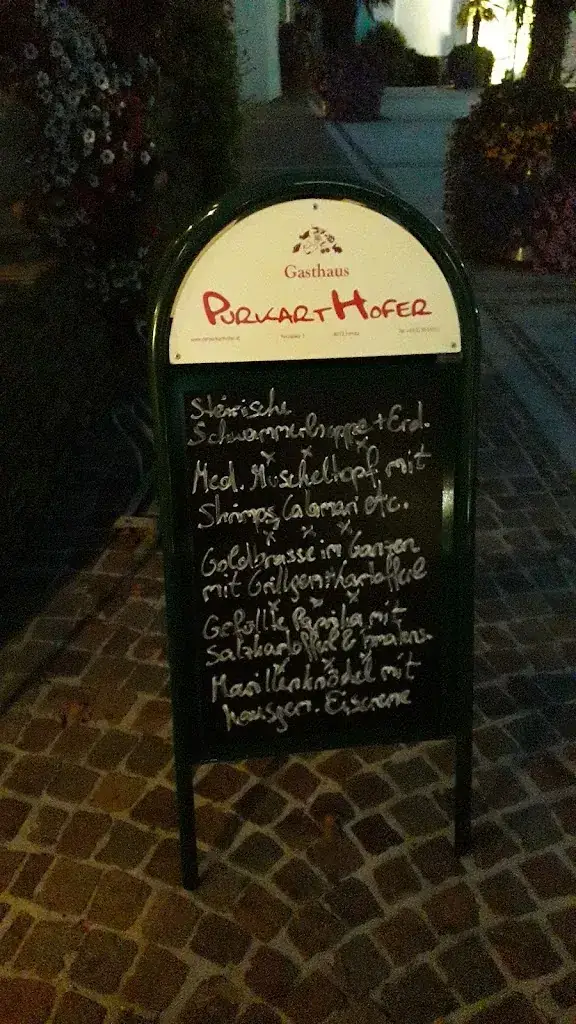 Gasthaus
PURKARTHOFER
Steirische
Schwammerlsuppe + Erd.
Med. Muscheltopf mit
Shrimps, Calamari etc.
Goldbrasse im Ganzen
mit Grillgem. + Kartofferl
Gefüllte Paprika mit
Salzkartofferl &
Marillenknödel mit
hausgem. Eiscreme